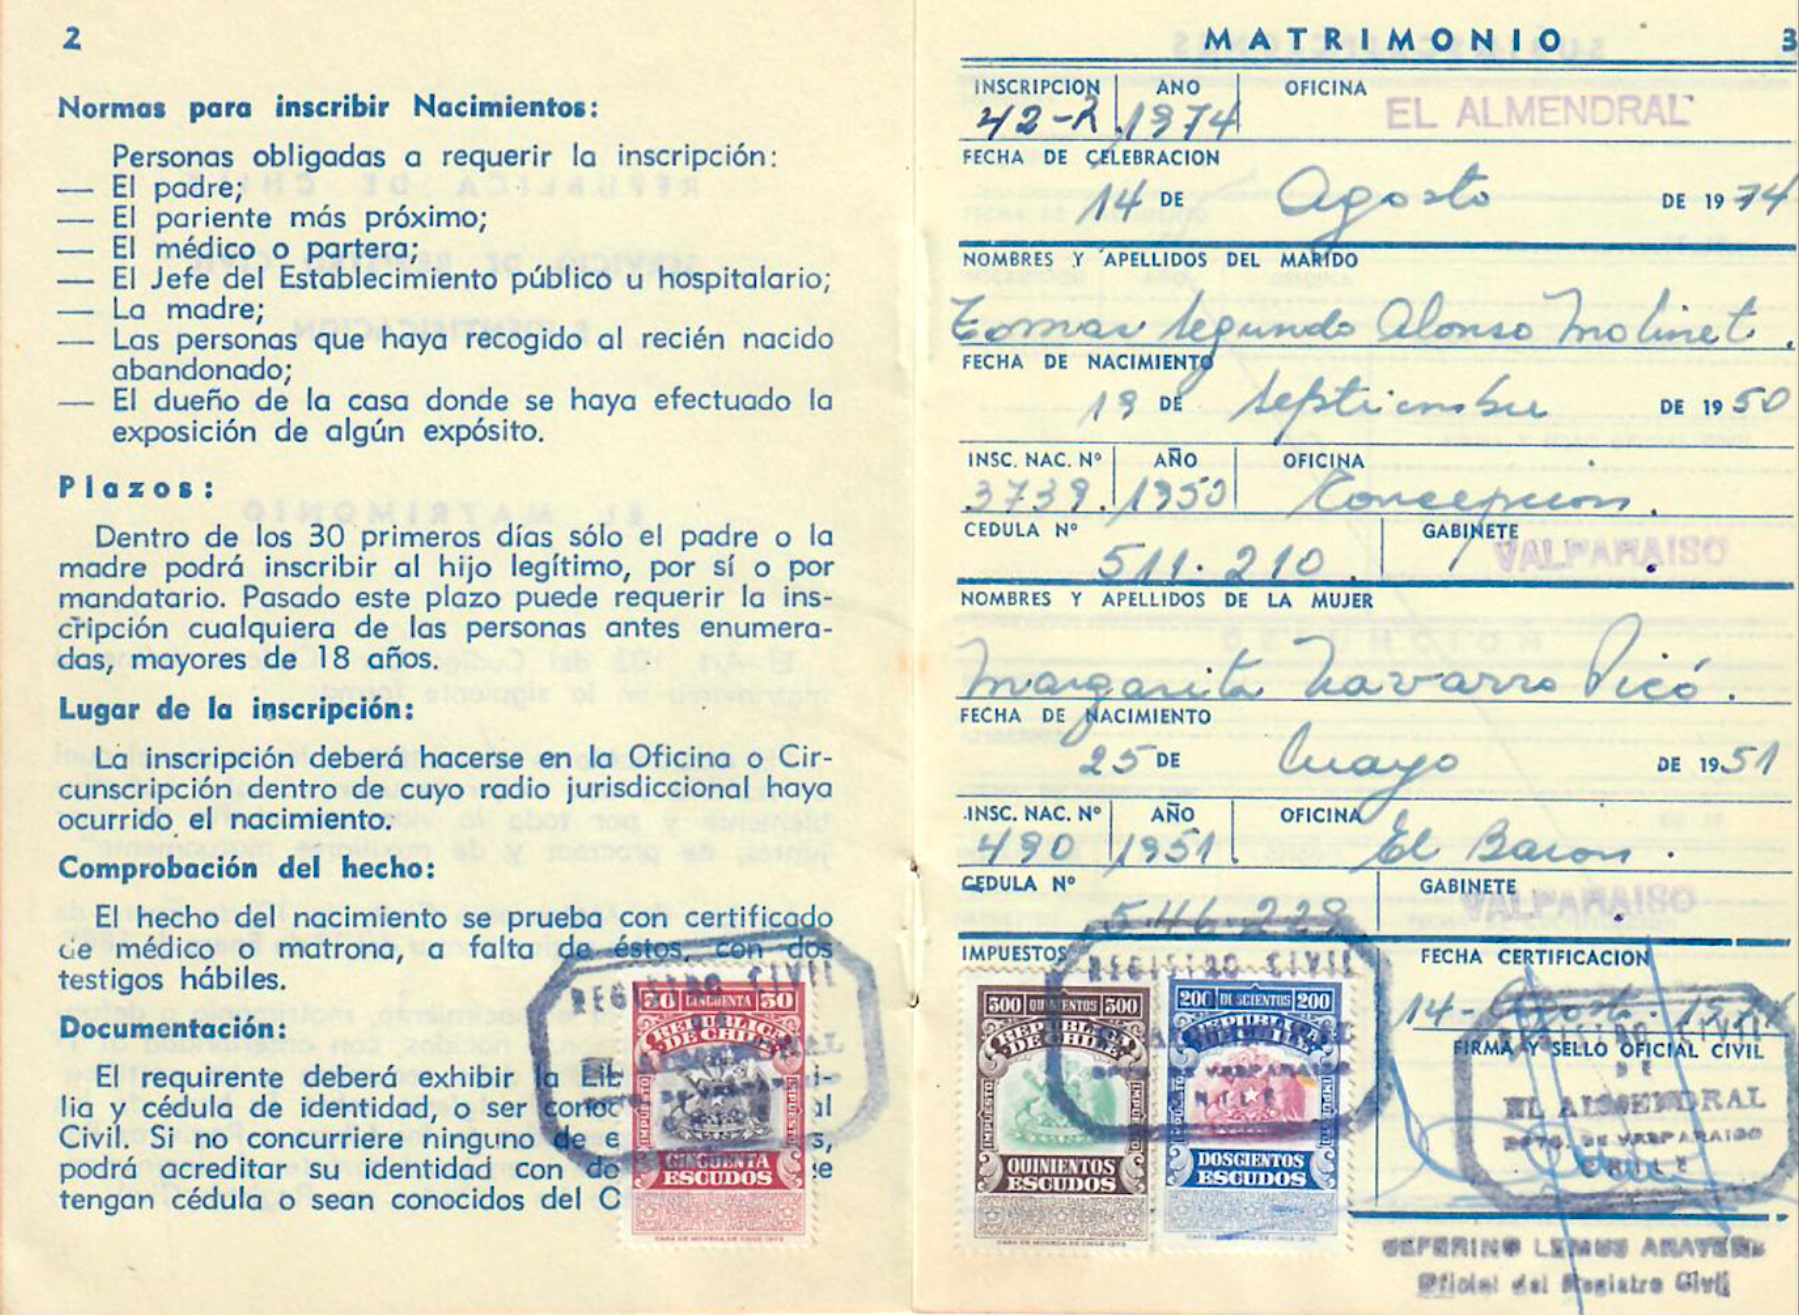 2
Normas para inscribir Nacimientos:
Personas obligadas a requerir la inscripción:
— El padre;
— El pariente más próximo;
— El médico o partera;
— El Jefe del Establecimiento público u hospitalario;
— La madre;
— Las personas que haya recogido al recién nacido
abandonado;
— El dueño de la casa donde se haya efectuado la
exposición de algún expósito.
Plazos:
Dentro de los 30 primeros días sólo el padre o la
madre podrá inscribir al hijo legítimo, por sí o por
mandatario. Pasado este plazo puede requerir la ins-
cripción cualquiera de las personas antes enumera-
das, mayores de 18 años.
Lugar de la inscripción:
La inscripción deberá hacerse en la Oficina o Cir-
cunscripción dentro de cuyo radio jurisdiccional haya
ocurrido el nacimiento.
Comprobación del hecho:
El hecho del nacimiento se prueba con certificado
de médico o matrona, a falta de éstos, con dos
testigos hábiles.
Documentación:
El requirente deberá exhibir la Lib
lia y cédula de identidad, o ser conoc al
Civil. Si no concurriere ninguno de e s,
podrá acreditar su identidad con do e
tengan cédula o sean conocidos del C
REGISTRO CIVIL
50 CINCUENTA 50
REPUBLICA
DE CHILE
IMPUESTO
CINCUENTA
ESCUDOS
CASA DE MONEDA DE CHILE
MATRIMONIO 3
INSCRIPCION AÑO OFICINA
42-R 1974 EL ALMENDRAL
FECHA DE CELEBRACION
14 DE Agosto DE 1974
NOMBRES Y APELLIDOS DEL MARIDO
Tomas Segundo Alonso Molinet.
FECHA DE NACIMIENTO
19 DE Septiembre DE 1950
INSC. NAC. Nº AÑO OFICINA
3739. 1950 Concepcion.
CEDULA Nº GABINETE
511.210. VALPARAISO
NOMBRES Y APELLIDOS DE LA MUJER
Margarita Navarro Picó.
FECHA DE NACIMIENTO
25 DE Mayo DE 1951
INSC. NAC. Nº AÑO OFICINA
490 1951. El Baron.
CEDULA Nº GABINETE
546.229 VALPARAISO
IMPUESTOS FECHA CERTIFICACION
REGISTRO CIVIL
14-Agosto-1974
FIRMA Y SELLO OFICIAL CIVIL
500 QUINIENTOS 500
REPUBLICA
DE CHILE
IMPUESTO
QUINIENTOS
ESCUDOS
200 DOSCIENTOS 200
REPUBLICA
DE CHILE
IMPUESTO
DOSCIENTOS
ESCUDOS
REGISTRO CIVIL
DE
EL ALMENDRAL
DPTO. DE VALPARAISO
CHILE
CEFERINO LEMUS ARAVENA
Oficial del Registro Civil